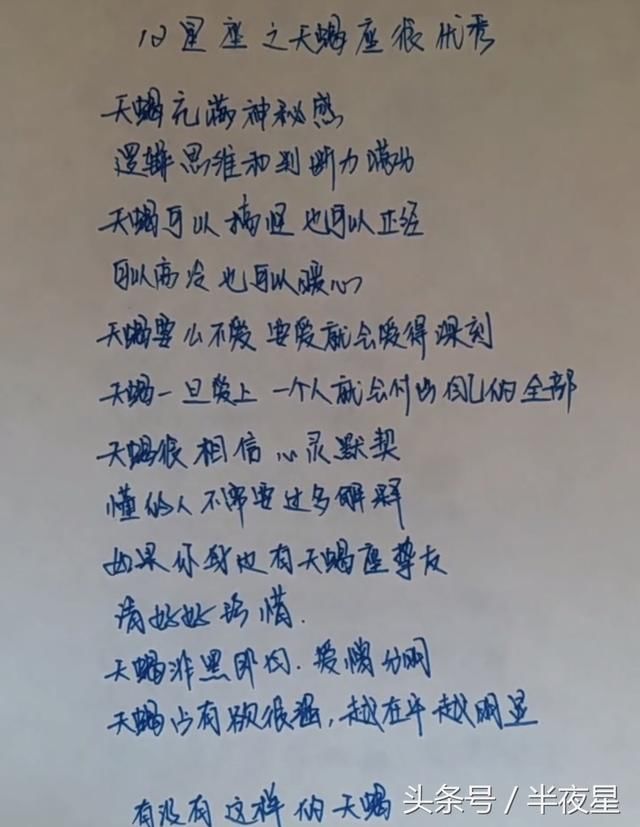 12星座之天蝎座很优秀
天蝎充满神秘感
逻辑思维和判断力满分
天蝎可以搞怪也可以正经
可以高冷也可以暖心
天蝎要么不爱 要爱就会爱得深刻
天蝎一旦爱上一个人就会付出自己的全部
天蝎很相信心灵默契
懂的人不需要过多解释
如果你身边有天蝎座挚友
请好好珍惜.
天蝎非黑即白.爱憎分明
天蝎占有欲很强,越在乎越明显
有没有这样的天蝎
头条号/半夜星